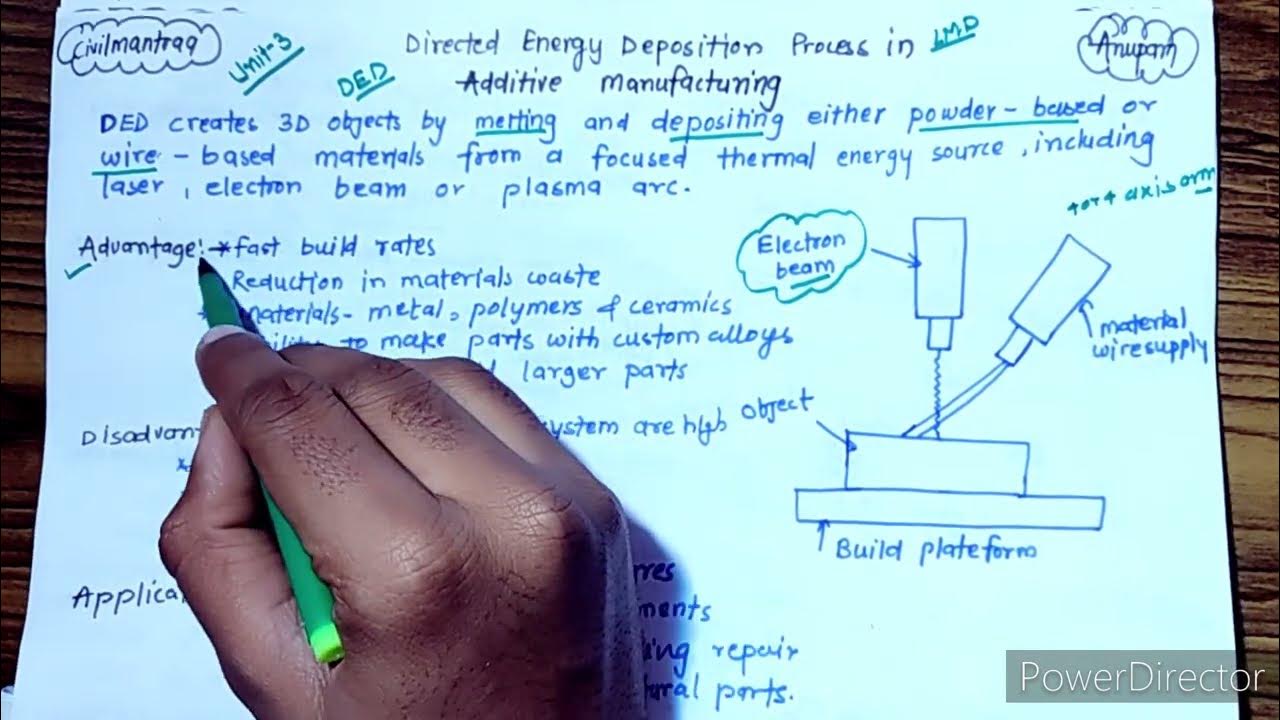 civilmantraa
Unit-3
Directed Energy Deposition Process in LMD
DED
Additive manufacturing
Anupam
DED creates 3D objects by melting and depositing either powder-based or
wire-based materials from a focused thermal energy source, including
laser, electron beam or plasma arc.
4 or 4 axis arm
Advantage:→*fast build rates
Reduction in materials waste
materials- metal, polymers & ceramics
to make parts with custom alloys
larger parts
Disadvan
system are high
Applica
res
ments
ing repair
tural parts.
Electron
beam
material
wire supply
Object
Build plateform
PowerDirector